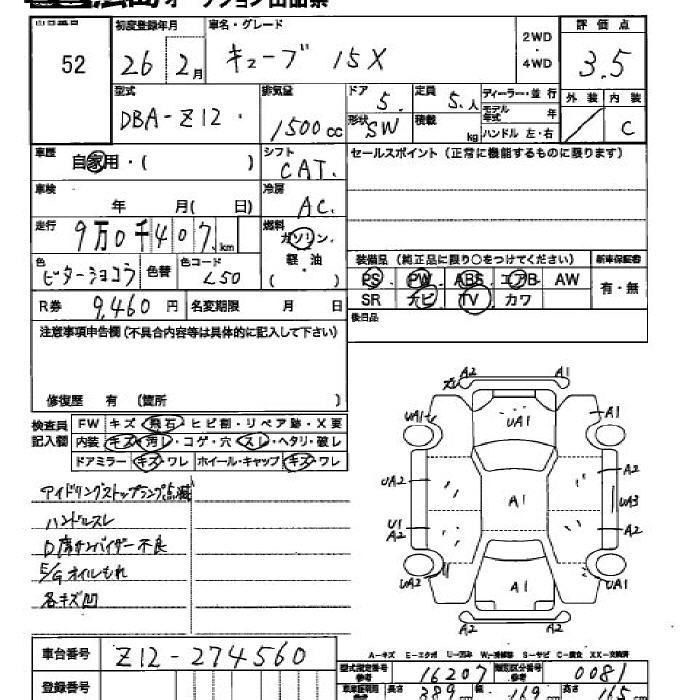 オークション出品票
出品番号 初度登録年月 車名・グレード 2WD ・ 4WD 評価点
52 26年 2月 キューブ 15X 3.5
型式 排気量 ドア 5. 定員 5.人 ディーラー・並行 外装 内装
DBA-Z12. 1500cc 形状 SW 積載 kg モデル年式 年 ／ C
ハンドル 左・右
車歴 自家用・( ) シフト CAT. セールスポイント (正常に機能するものに限ります)
車検 年 月( 日) 冷房 AC.
走行 9万0千407.km 燃料 ガソリン. 軽油 ( ・ )
装備品 (純正品に限り○をつけてください) 新車保証書
色 ビターショコラ 色替 色コード L50 PS PW ABS エアB AW 有・無
R券 9,460円 名変期限 月 日 SR ナビ TV カワ
後日品
注意事項申告欄 (不具合内容等は具体的に記入して下さい)
修復歴 有 (箇所 )
検査員記入欄 FW キズ・飛石・ヒビ割・リペア跡・X要
内装 キズ・汚レ・コゲ・穴・スレ・ヘタリ・破レ
ドアミラー キズ・ワレ ホイール・キャップ キズ・ワレ
アイドリングストップランプ点滅
ハンドルスレ
D席サンバイザー不良
E/Gオイルもれ
各キズ凹
A2 A1
UA1 UA1 A1
UA2 A1 A2
UA3
U1
A2 A2
UA2 A1 UA1
A2 A2
A-キズ E-エクボ U-凹み W-補修跡 S-サビ C-腐食 XX-交換済
車台番号 Z12-274560
型式指定番号 参考 16207 類別区分番号 参考 0081
登録番号
車庫証明用 参考 長さ 389cm 幅 169cm 高さ 165cm